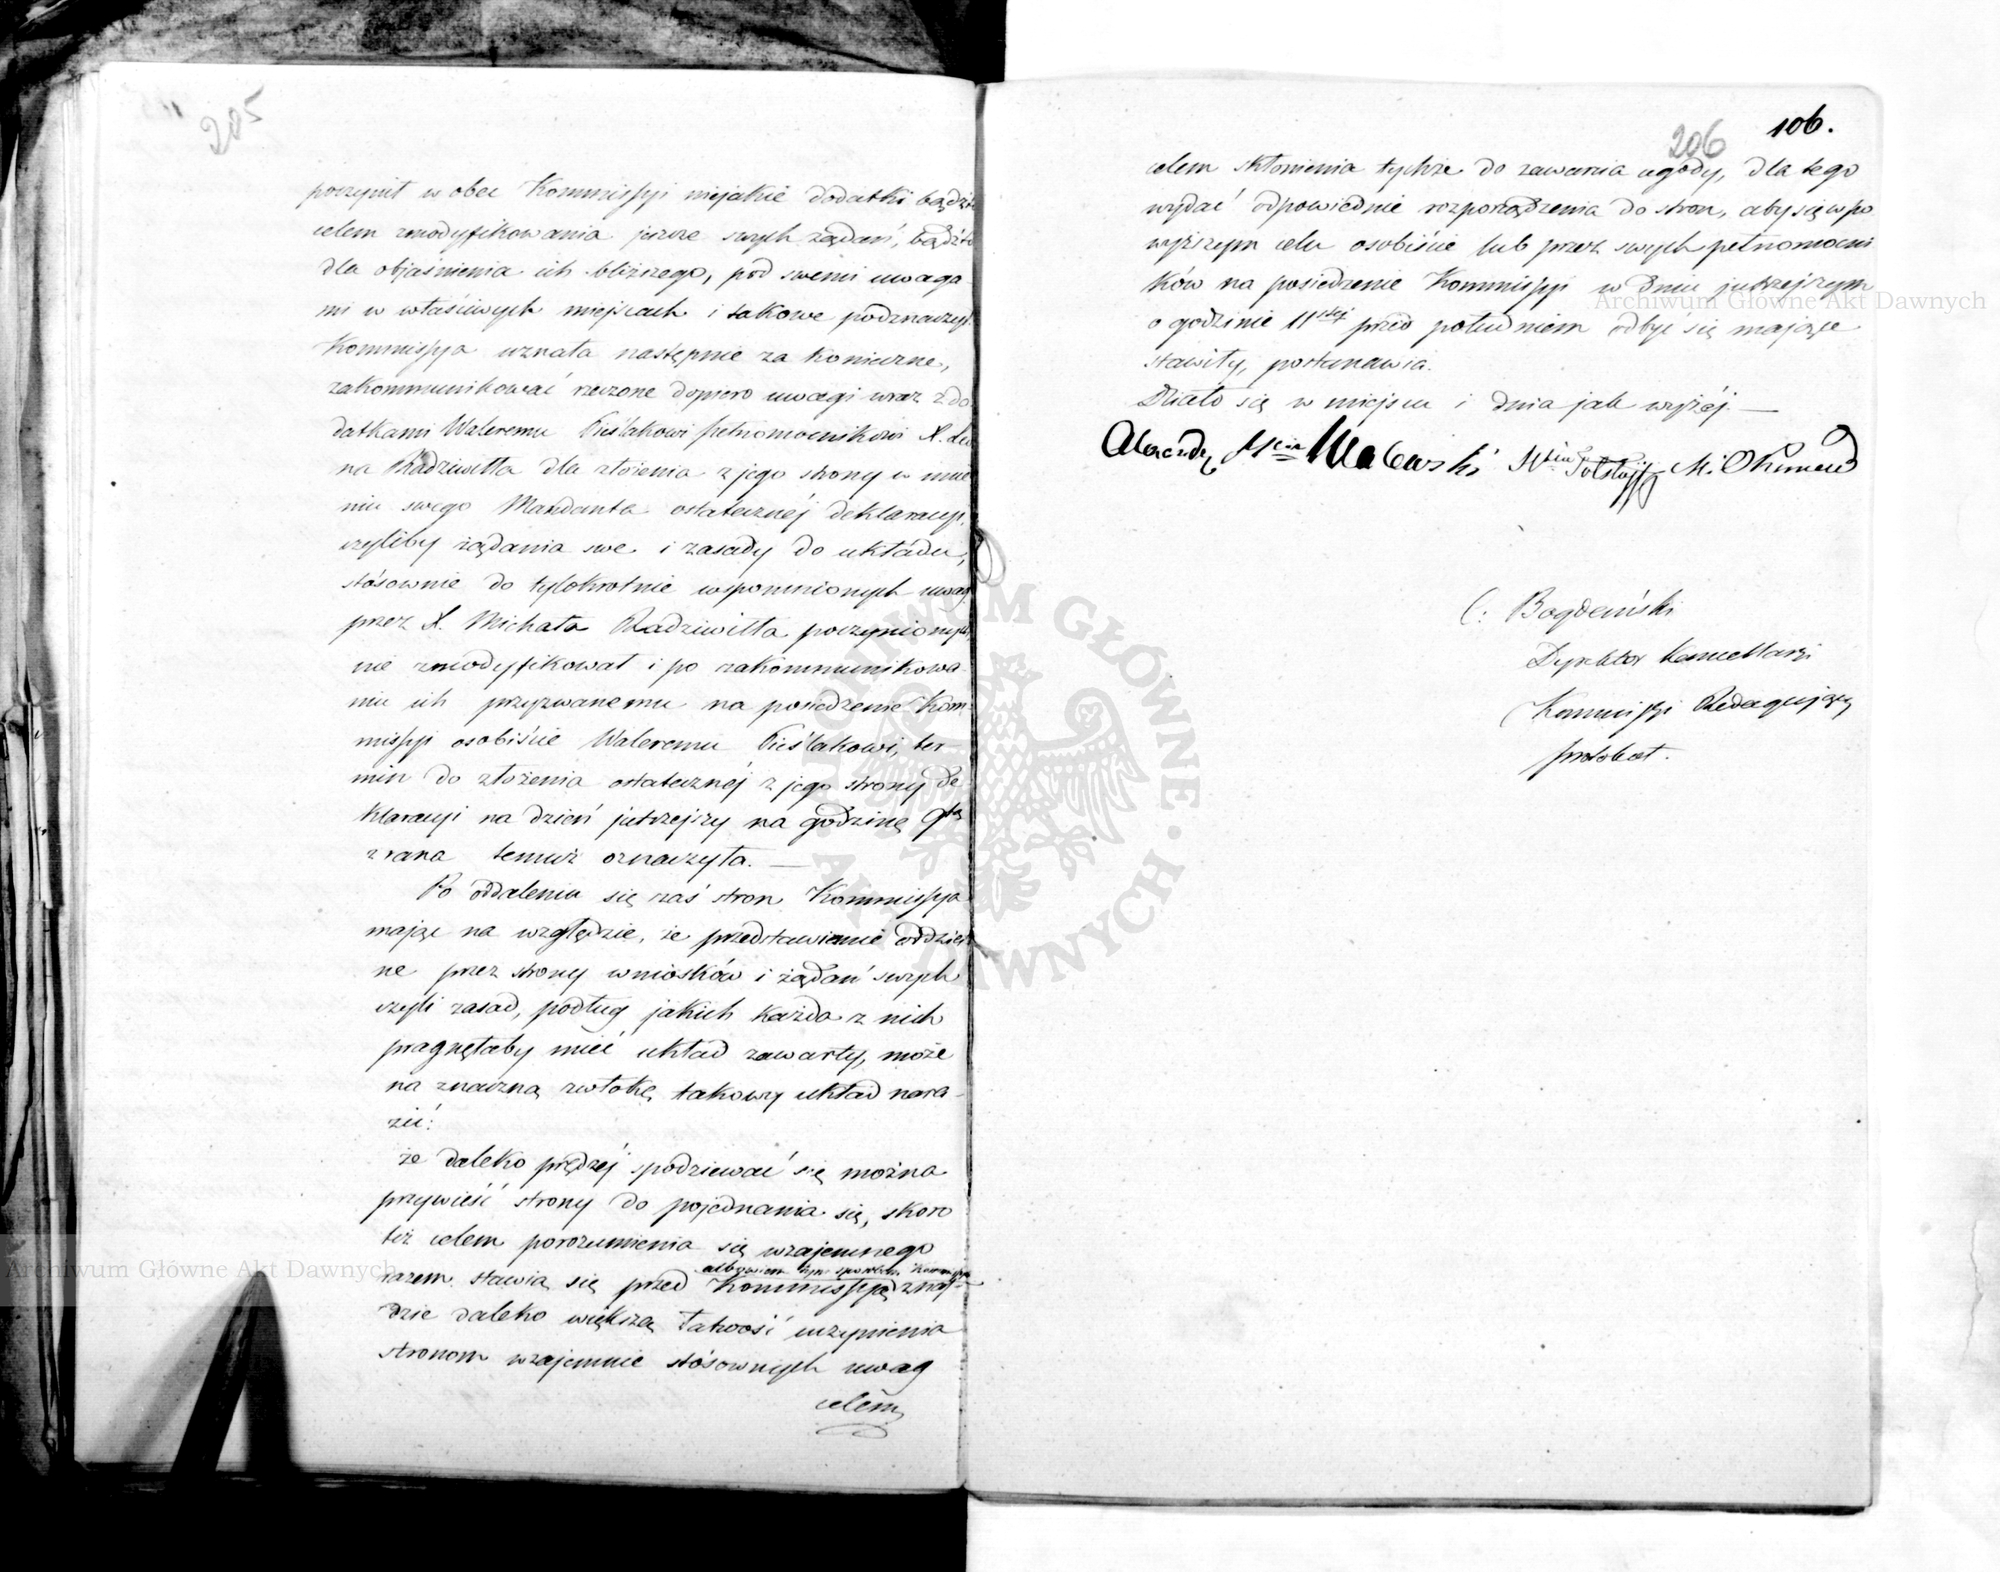 205
poczynił w obec Kommissyi niejakie dodatki bądźto
celem zmodyfikowania jeszcze swych żądań, bądźto
dla objaśnienia ich bliższego, pod swemi uwaga
mi w właściwych miejscach i takowe podznaczył.
Kommissya uznała następnie za konieczne,
zakommunikować rzeczone dopiero uwagi wraz z do
datkami Waleremu Pieślakowi pełnomocnikowi X. Leo
na Radziwiłła dla złożenia z jego strony w imie
niu swego Mandanta ostatecznéj deklaracyi,
czyliby żądania swe i zasady do układu,
stósownie do tylokrotnie wspomnionych uwag
przez X. Michała Radziwiłła poczynionych
nie zmodyfikował i po zakommunikowa
niu ich przyzwanemu na posiedzenie Kom
missyi osobiście Waleremu Pieślakowi, ter-
min do złożenia ostatecznéj z jego strony de
klaracyi na dzień jutrzejszy na godzinę 9tą
z rana temuż oznaczyła. —
Po oddaleniu się zaś stron Kommissya
mając na względzie, że przedstawienie oddziel
ne przez strony wniosków i żądań swych
czyli zasad, podług jakich każda z nich
pragnęłaby mieć układ zawarty, może
na znaczną zwłokę takowy układ nara-
zić:
że daleko prędzéj spodziewać się można
przywieść strony do pojednania się, skoro
też celem porozumienia się wzajemnego
albowiem tym sposobem Kommissya
razem stawią się przed Kommissyą znaj-
dzie daleko większą łatwość uczynienia
stronom wzajemnie stósownych uwag
celem
206 106.
celem skłonienia tychże do zawarcia ugody, dla tego
wydać odpowiednie rozporządzenia do stron, aby się w po
wyższym celu osobiście lub przez swych pełnomocni
ków na posiedzenie Kommissyi w dniu jutrzejszym
o godzinie 11stéj przed południem odbyć się mające
stawiły, postanawia.
Działo się w miejscu i dnia jak wyżéj. —
Walewski
(: Bogdeński
Dyrektor Kancellaryi
Kommissyi Redagujący
protokół.
Archiwum Główne Akt Dawnych
Archiwum Główne Akt Dawnych
ARCHIWUM GŁÓWNE AKT DAWNYCH